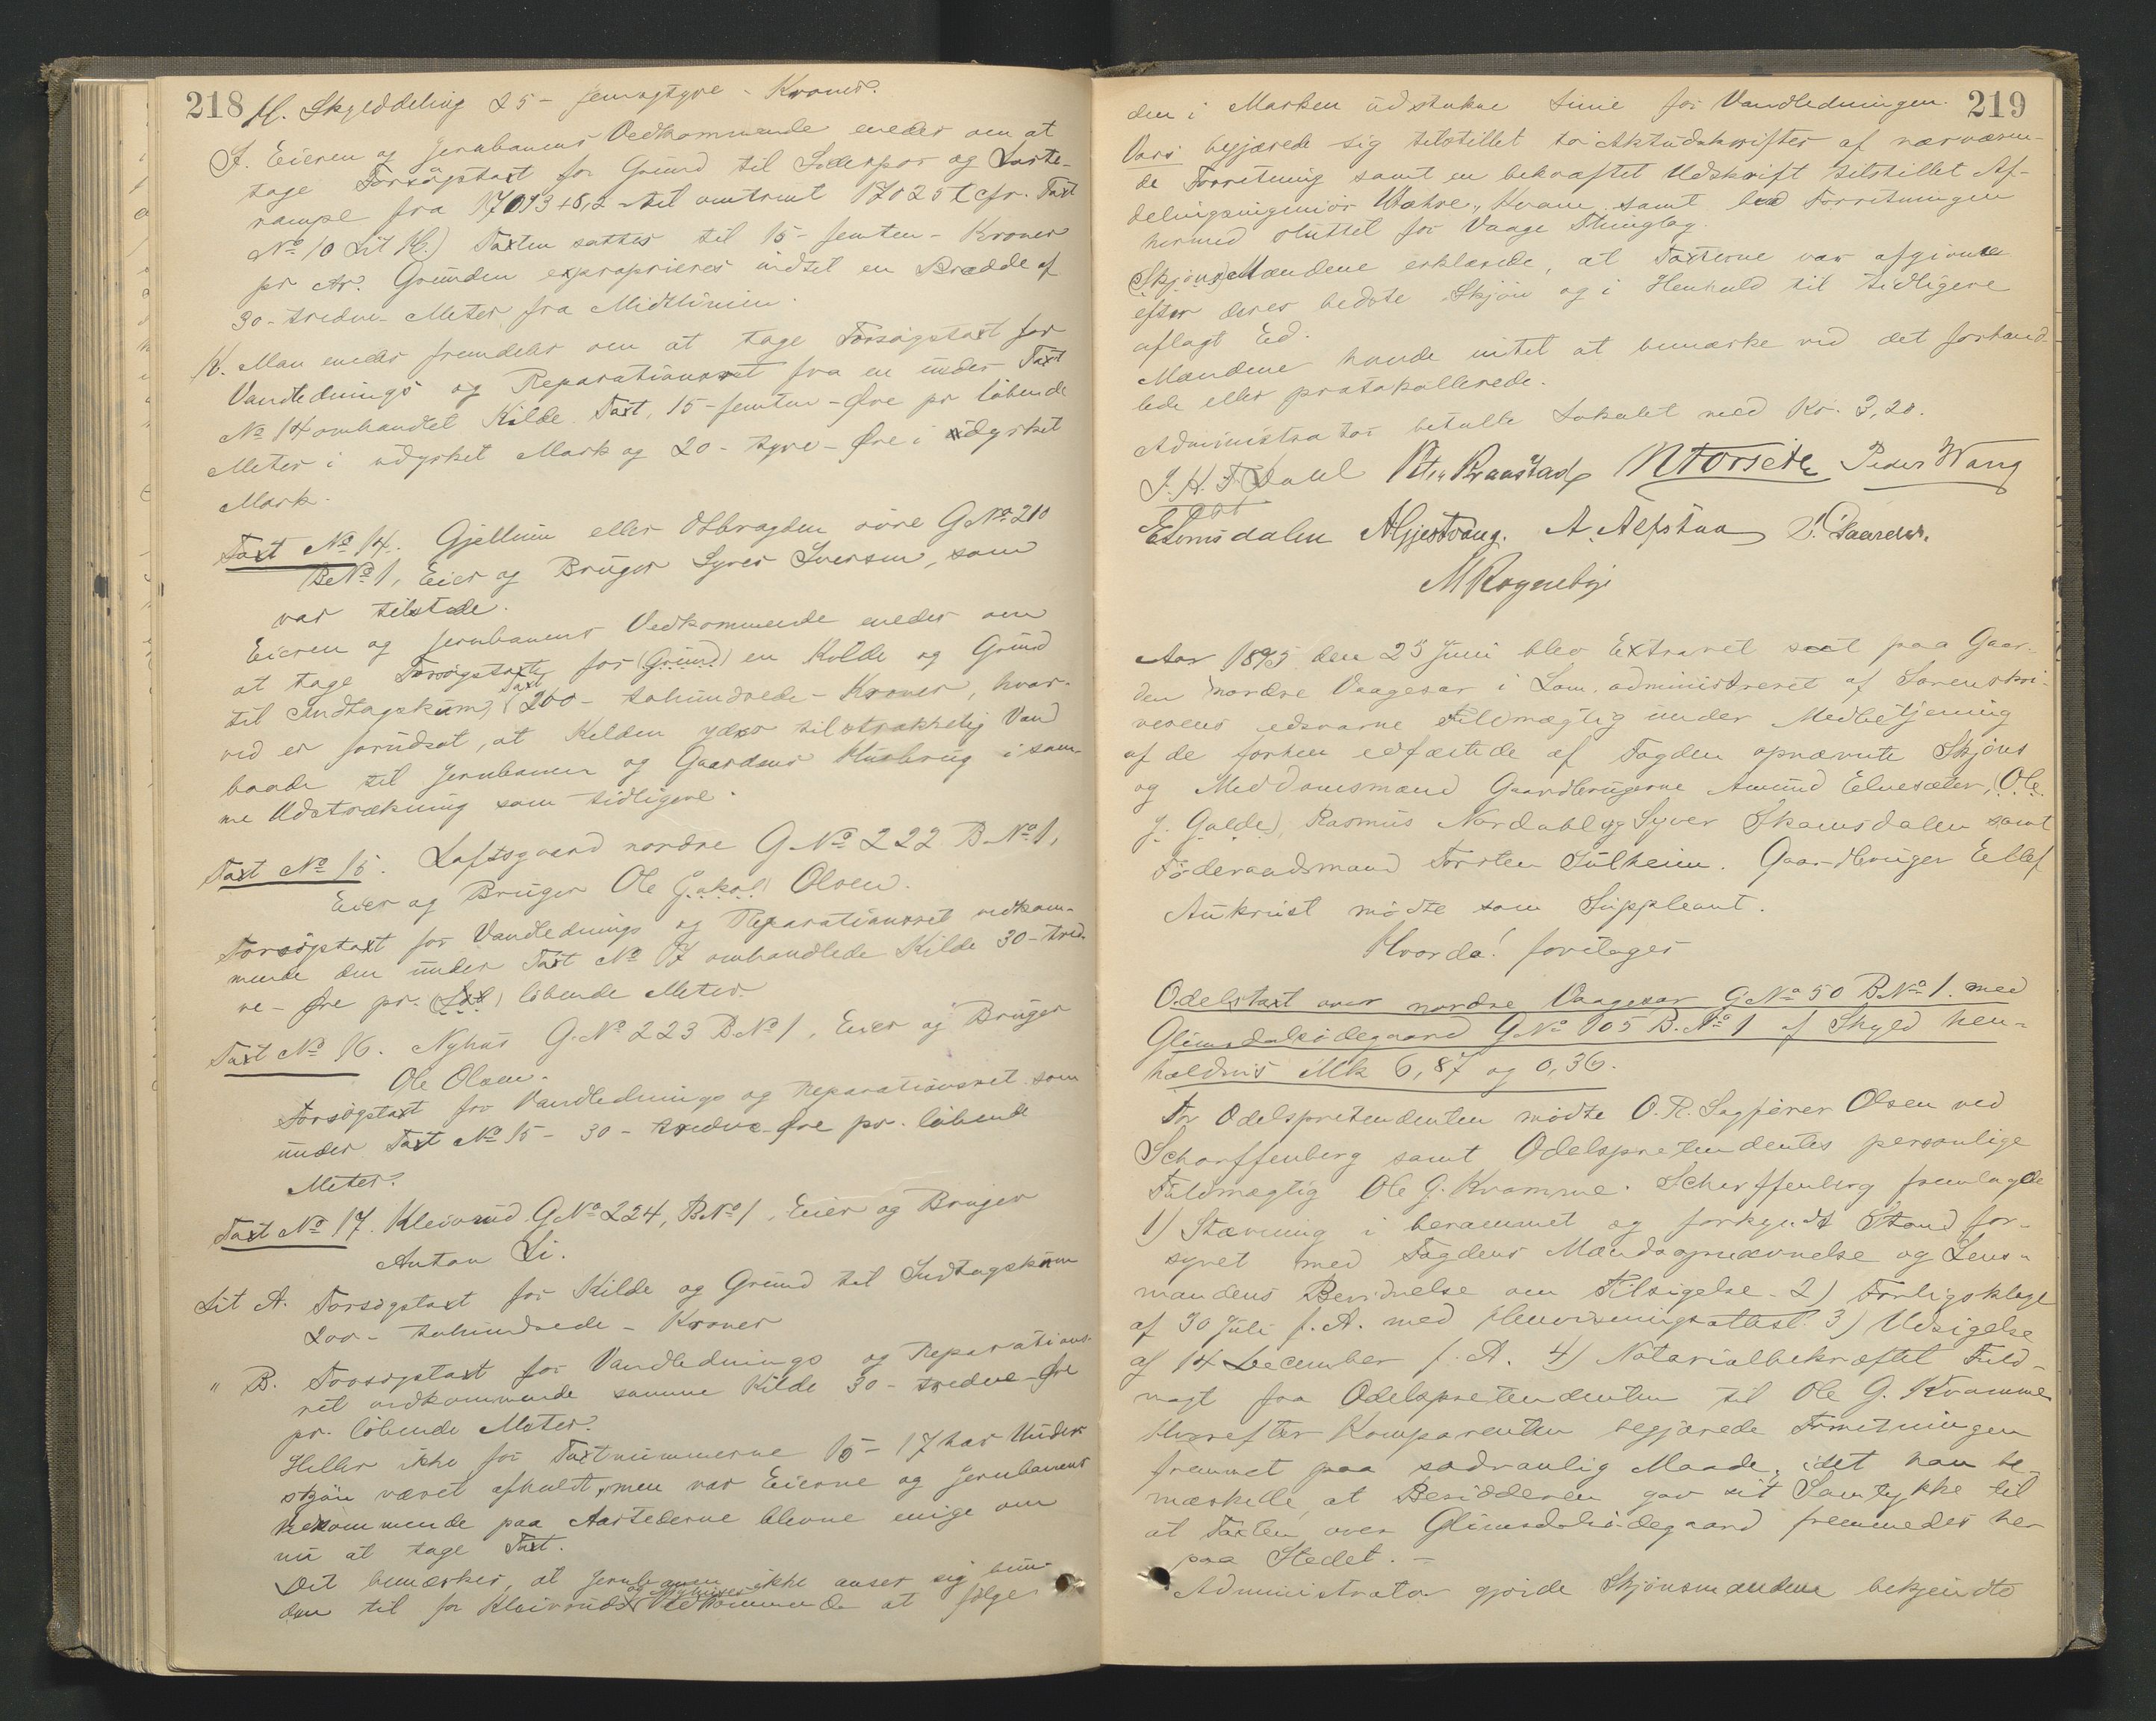 218 H. Skylddeling 25 - femogtyve - Kroner.
I. Eieren og Jernbanens Vedkommende enedes om at
tage Forsøgstaxt for Grund til Sidespor og Laste-
rampe fra 17013+8,2 til omtrent 17025 (cfr. Taxt
No 10 Lit H.) Taxten sattes til 15 - femten - Kroner
pr Ar. Grunden exproprieres indtil en Bredde af
30 - tredve - Meter fra Midtlinien.
K. Man enedes fremdeles om at tage Forsøgstaxt for
Vandlednings og Reparationsret fra en under Taxt
No 14 omhandlet Kilde. Taxt, 15 - femten - Øre pr løbende
Meter i udyrket Mark og 20 - tyve - Øre i dyrket
Mark.
Taxt No 14. Gjellum eller Odbragden øvre G.No 210
B.No 1, Eier og Bruger Syver Iversen, som
var tilstede.
Eieren og Jernbanens Vedkommende enedes om
at tage Forsøgstaxt for (Grund) en Kilde og Grund
til Indtagskum, Taxt 200 - tohundrede - Kroner, hvor-
ved er forudsat, at Kilden yder tilstrækkelig Vand
baade til Jernbanen og Gaardens Husbrug i sam-
me Udstrækning som tidligere.
Taxt No 15. Loftsgaard nordre G.No 222 B.No 1,
Eier og Bruger Ole (Jakob) Olsen.
Forsøgstaxt for Vandlednings og Reparationsret vedkom-
mende den under Taxt No 17 omhandlede Kilde 30 - tred-
ve - Øre pr. løbende Meter.
Taxt No 16. Nyhus G.No 223 B.No 1, Eier og Bruger
Ole Olsen.
Forsøgstaxt for Vandlednings og Reparationsret som
under Taxt No 15 - 30 - tredve - Øre pr. løbende
Meter.
Taxt No 17. Kleivrud G.No 224, B.No 1, Eier og Bruger
Anton Li.
Lit A. Forsøgstaxt for Kilde og Grund til Indtagskum
200 - tohundrede - Kroner
" B. Forsøgstaxt for Vandlednings og Reparations-
ret vedkommende samme Kilde 30 - tredve - Øre
pr. løbende Meter.
Heller ikke for Taxtnummerne 15 - 17 har Under-
skjøn været afholdt, men var Eierne og Jernbanens
Vedkommende paa Aastederne blevne enige om
nu at tage Taxt.
Det bemærkes, at Jernbanen ikke anser sig bun-
den til for Kleivruds og Nyhuses Vedkommende at følge
219
den i Marken udstukne Linie for Vandledningen.
Vars begjærede sig tilstillet to Aktudskrifter af nærværen-
de Forretning samt en bekræftet Udskrift tilstillet Af-
delingsingeniør Wahre, Kvam samt lod Forretningen
hermed sluttet for Vaage Thinglag.
(Skjøns)Mændene erklærede, at Taxterne var afgivne
efter deres bedste Skjøn og i Henhold til tidligere
aflagt Ed.
Mændene havde intet at bemærke ved det forhand-
lede eller protokollerede.
Administrator betalte Lokalet med Kr. 3,20.
J. H. F. Dahl Peter Kraastad N Forseth Peder Wang
E Lomsdalen A Gjestvang. A. Alfstaa P. Paareder.
M Rognebye
Aar 1895 den 25 Juni blev Extraret sat paa Gaar-
den nordre Vaagesar i Lom, administreret af Sorenskri-
verens edsvorne Fuldmægtig under Medbetjening
af de forhen edfæstede af Fogden opnævnte Skjøns
og Meddomsmænd Gaardbrugerne Amund Elvesæter, (Ole
J. Galde), Rasmus Nordahl og Syver Skamsdalen samt
Føderaadsmand Torsten Sulheim. Gaardbruger Ellef
Aukrust mødte som Suppleant.
Hvorda! foretages
Odelstaxt over nordre Vaagesar G.No 50 B.No 1 med
Glimsdalsødegaard G.No 105 B.No 1 af Skyld hen-
holdsvis Mk 6,87 og 0,36.
For Odelspretendenten mødte O. R. Sagfører Olsen ved
Scharffenberg samt Odelspretendentes personlige
Fuldmægtig Ole G. Kvamme. Scharffenberg fremlagde
1) Stævning i berammet og forkyndt Stand for-
synet med Fogdens Mændsopnævnelse og Lens-
mandens Bevidnelse om Tilsigelse. 2) Forligsklage
af 30 Juli f. A. med Henvisningsattest. 3) Udsigelse
af 14 December f. A. 4) Notarialbekræftet Fuld-
magt fra Odelspretendenten til Ole G. Kvamme
Hvorefter Komparenten begjærede Forretningen
fremmet paa sædvanlig Maade, idet han be-
mærkede, at Besidderen gav sit Samtykke til
at Taxten over Glimsdalsødegaard fremmedes her
paa Stedet. -
Administrator gjorde Skjønsmændene bekjendte